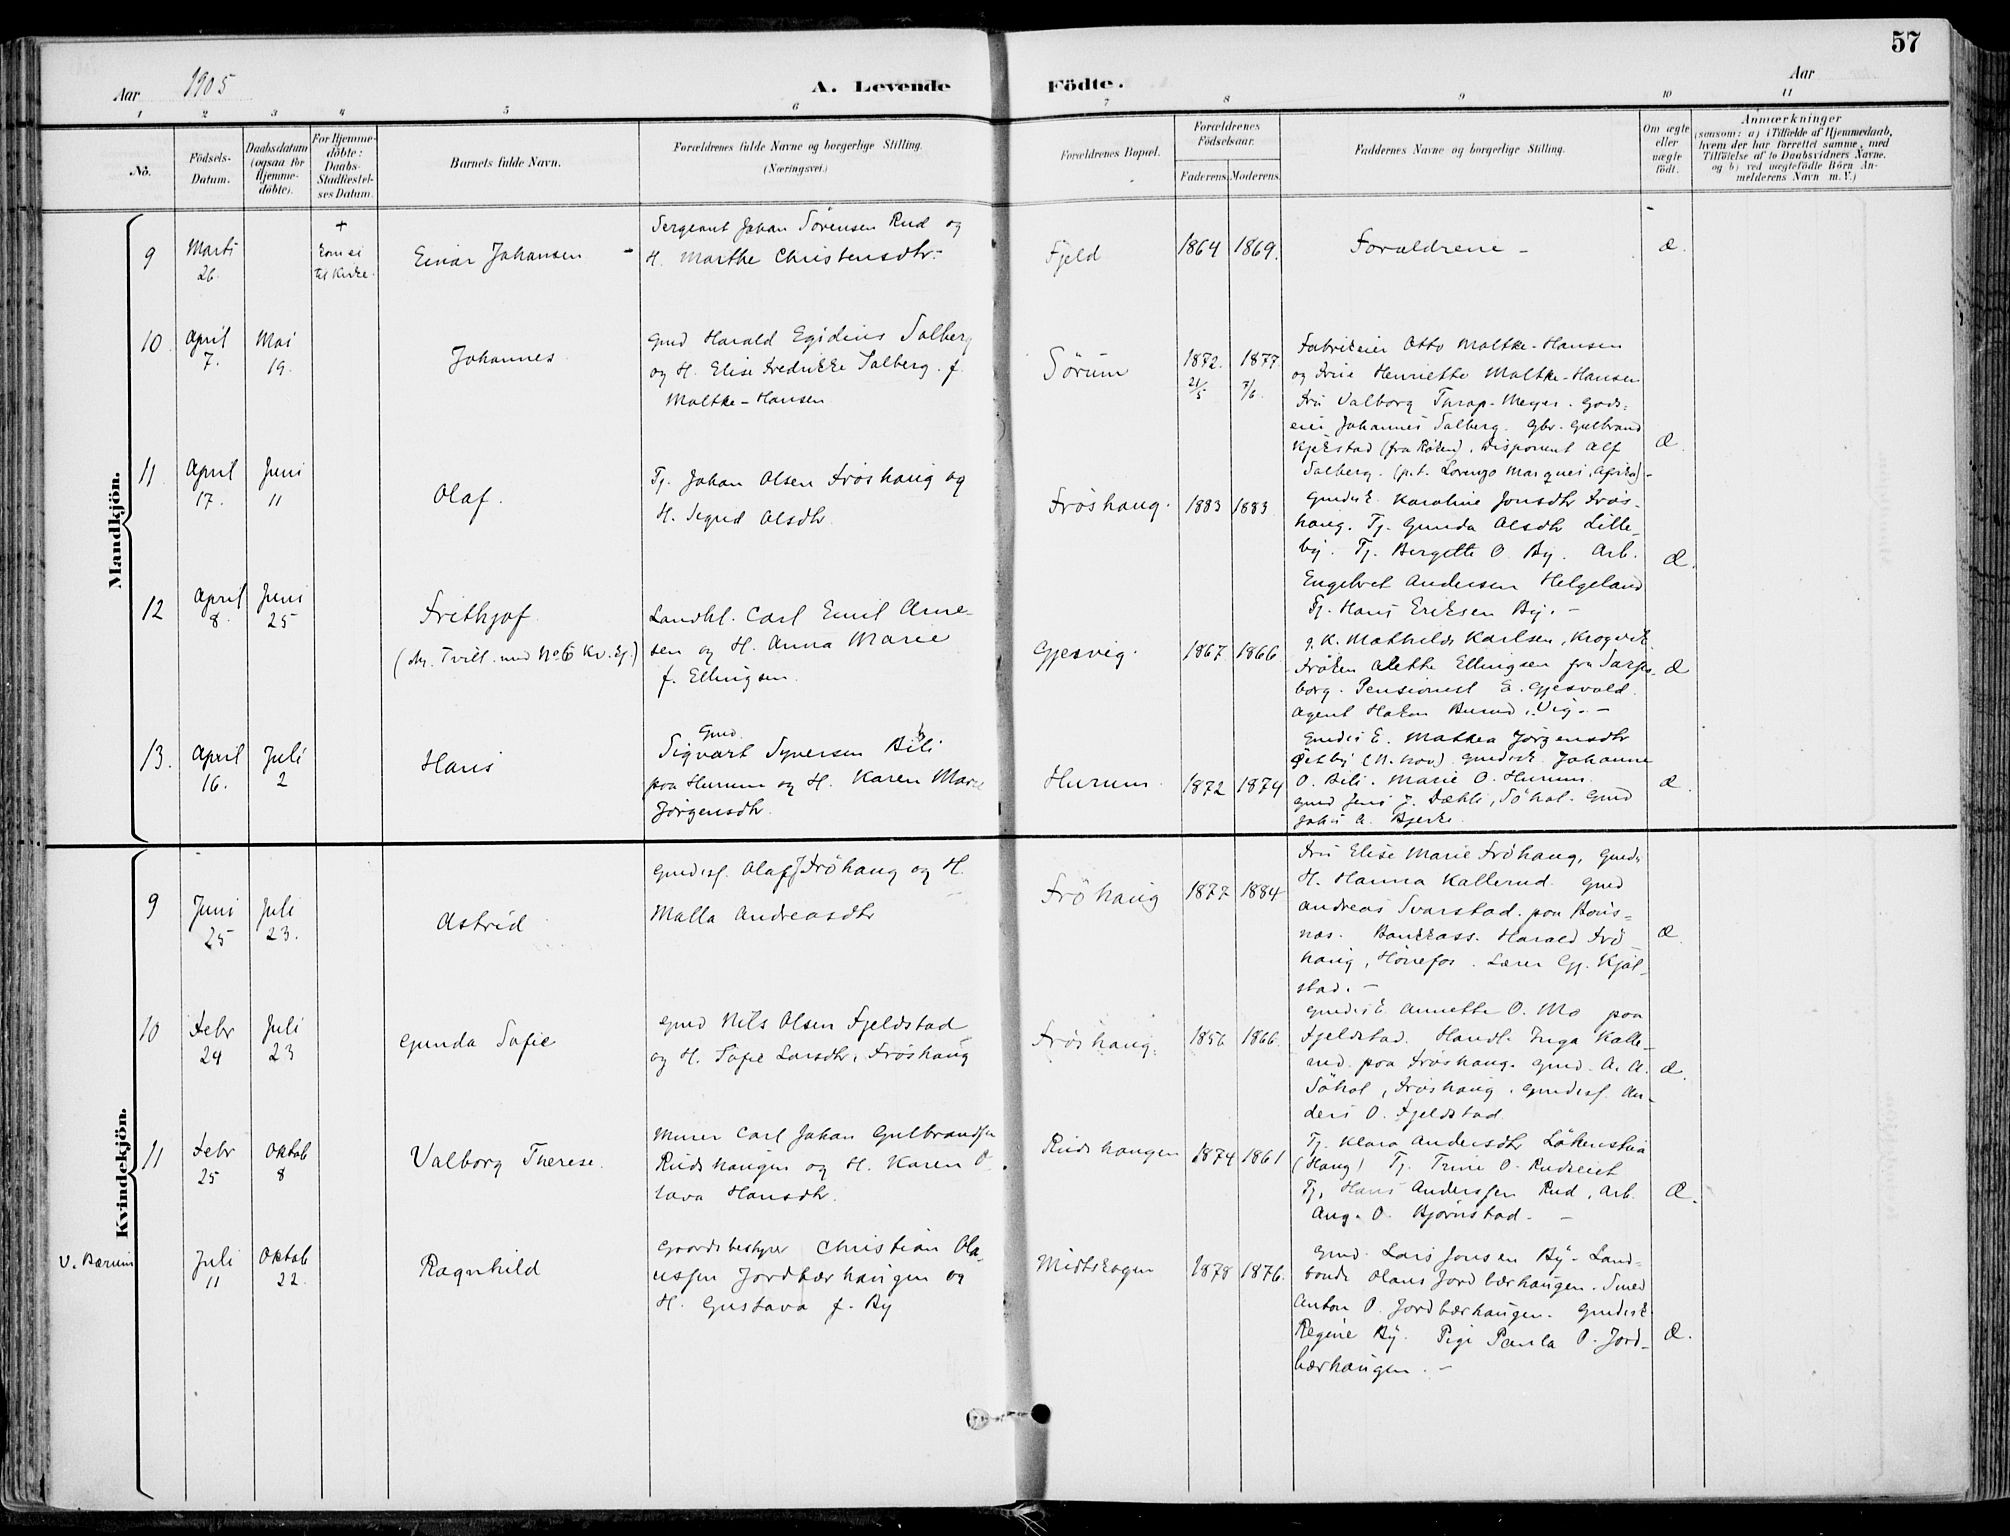 57
Aar 1905
A. Levende Födte.
Aar
1 2 3 4 5 6 7 8 9 10 11
No.
Födsels-Datum.
Daabsdatum (ogsaa for Hjemme-döbte).
For Hjemme-döbte: Daabs-Stadfæstel-ses Datum.
Barnets fulde Navn.
Forældrenes fulde Navne og borgerlige Stilling. (Næringsvei.)
Forældrenes Bopæl.
Forældrenes Födselsaar.
Faderens. Moderens.
Faddernes Navne og borgerlige Stilling.
Om ægte eller uægte födt.
Anmærkninger
(saasom: a) i Tilfælde af Hjemmedaab, hvem der har forrettet samme, med Tilföielse af to Daabsvidners Navne, og b) ved uægtefödte Börn An-melderens Navn m. V.)
Mandkjön.
9
Marts 26
+ Kom ei til Kirke.
Einar Johansen
Sergeant Johan Sörensen Rud og
H. Marthe Christensdtr.
Fjeld
1864 1869.
Forældrene –
Æ.
10
April 7.
Mai 19.
Johannes
Gmd Harald Egidius Solberg
og H. Elise Fredrikke Solberg. f.
Moltke-Hansen
Sörum
1872. 21/5
1877 7/6.
Fabrikeier Otto Moltke-Hansen
og Frue Henriette Moltke-Hansen
Fru Valborg Thrap-Meyer. Gods=
eier Johannes Solberg. Gbr. Gulbrand
Kjekstad (fra Röken). Disponent Alf
Solberg. (p.t. Lorenzo Marques, Afrika) –
Æ.
11.
April 17.
Juni 11
Olaf.
Tj. Johan Olsen Fröshaug og
H. Sigrid Olsdtr.
Fröshaug.
1883 1883
Gmdsk. Karoline Jonsdtr Frös-
haug. Tj. Gunda Olsdtr Lille-
by. Tj. Bergitte O. By. Arb.
Engebret Andersen Helgeland
Tj. Hans Eriksen By. –
Æ.
12
April 8.
Juni 25
Frithjof.
(Æ. Tvill. med No 6 Kv. Kj.)
Landhl. Carl Emil Arne-
sen og H. Anna Marie
f. Ellingsen.
Gjesvig.
1867 1866
g. K. Mathilde Karlsen, Krogsrk.
Fröken Alette Ellingsen fra Sarps-
borg. Pensionist E. Gjesvold.
Agent Hakon Burud, Vig. –
Æ
13.
April 16.
Juli 2
Hans
Gmd.
Sigvart Syversen Bili
paa Hurum og H. Karen Marie
Jörgensdtr.
Hurum.
1872 1874
Gmdsk. Mathea Jörgensdtr
Östby (N. Hov). Gmdsk. Johanne
O. Bili. Marie O. Hurum.
Gmd Jens J. Dæhli, Söhol. Gmd
Johs A. Bjerke.
Æ.
Kvindekjön.
9
Juni 25
Juli 23.
Astrid
Gmdss. Olaf J Fröhaug og H.
Malla Andreasdtr
Fröhaug
1877 1884
Fru Elise Marie Fröhaug, Gmds
H. Hanna Kallerud. Gmd
Andreas Svarstad. paa Böns=
nes. Bankkass. Harald Frö
haug, Hönefos. Lærer Gj. Kjöl-
stad. –
Æ.
10
Febr 24
Juli 23
Gunda Sofie
Gmd Nils Olsen Fjeldstad
og H. Sofie Larsdtr. Fröshaug
Fröshaug.
1856 1866.
Gmdsk Annette O. Mo paa
Fjeldstad. Handl. Inga Kalle-
rud. paa Fröshaug. Gmd. A. A.
Söhol, Fröshaug. Gmdss. An-
ders O. Fjeldstad
Æ.
11
Febr 25
Oktob 8
Valborg Therese.
Murer Carl Johan Gulbrandsen
Rudshaugen og H. Karen O
lava Hansdtr.
Rudshaugen
1874 1861
Tj. Klara Andersdtr Lökenslia
(Haug) Tj. Trine O. Rudseiet
Tj. Hans Anderssen Rud, Arb.
Aug. O. Bjornstad. –
Æ.
V. Bærum
Juli 11
Oktob 22.
Ragnhild
Gaardsbestyrer Christian Ola-
ussen Jordbærhaugen og
H. Gustava f. By
Midtskogen
1878 1876.
Gmd. Lars Jonsen By. Land-
bonde Hans Jordbærhaugen. Smed
Anton O. Jordbærhaugen. Gmdsk.
Regine By. Pige Paula O. Jord-
bærhaugen. –
Æ.